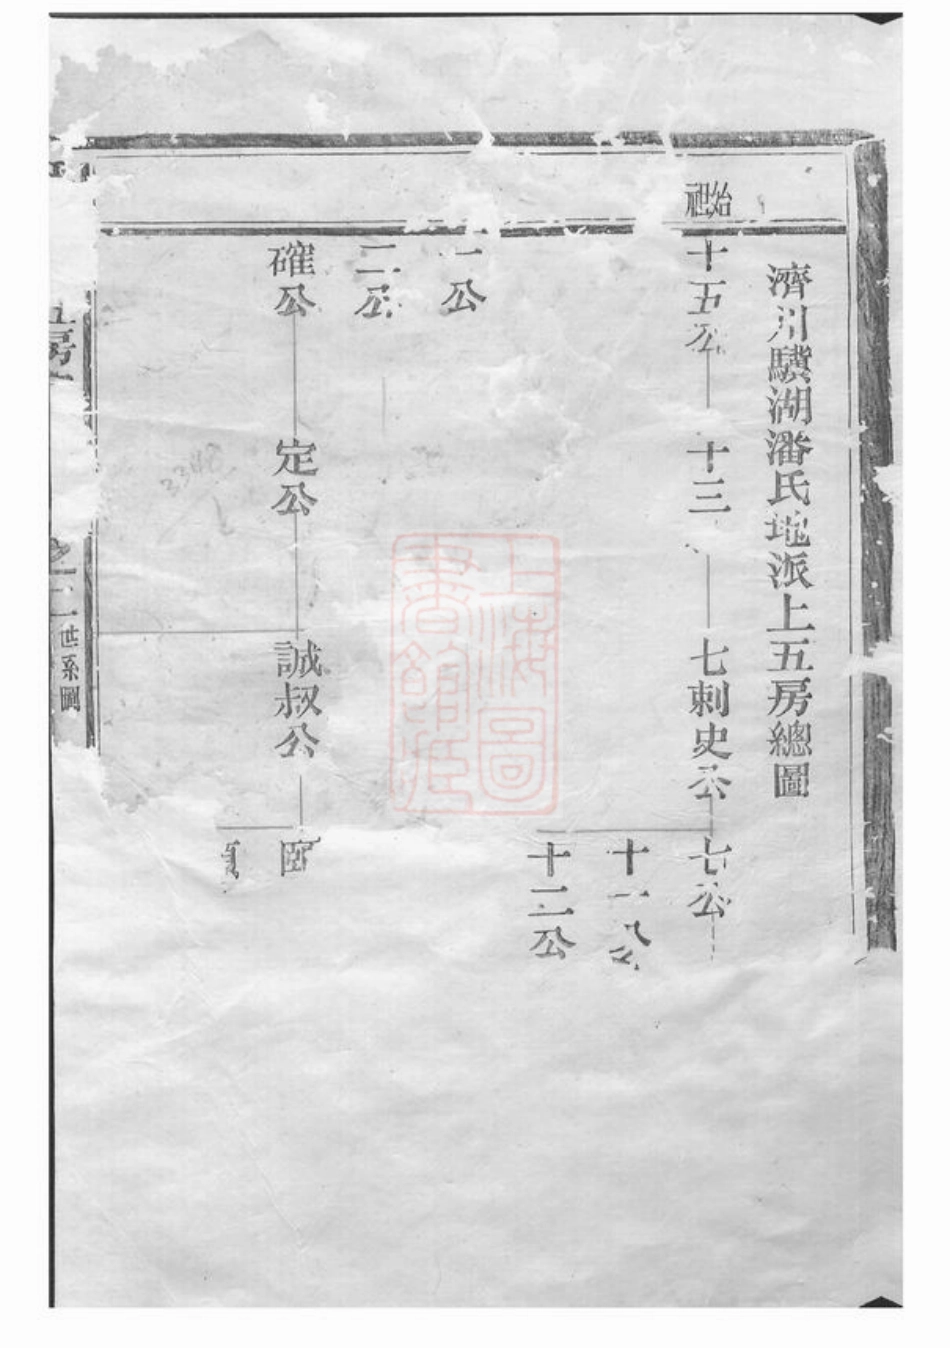 濟川驥湖潘氏地派上五房總圖
始祖
十五公
十三
七刺史公
七公
十一公
十二公
一公
二公
確公
定公
誠叔公
房
世系圖
上海圖書館藏